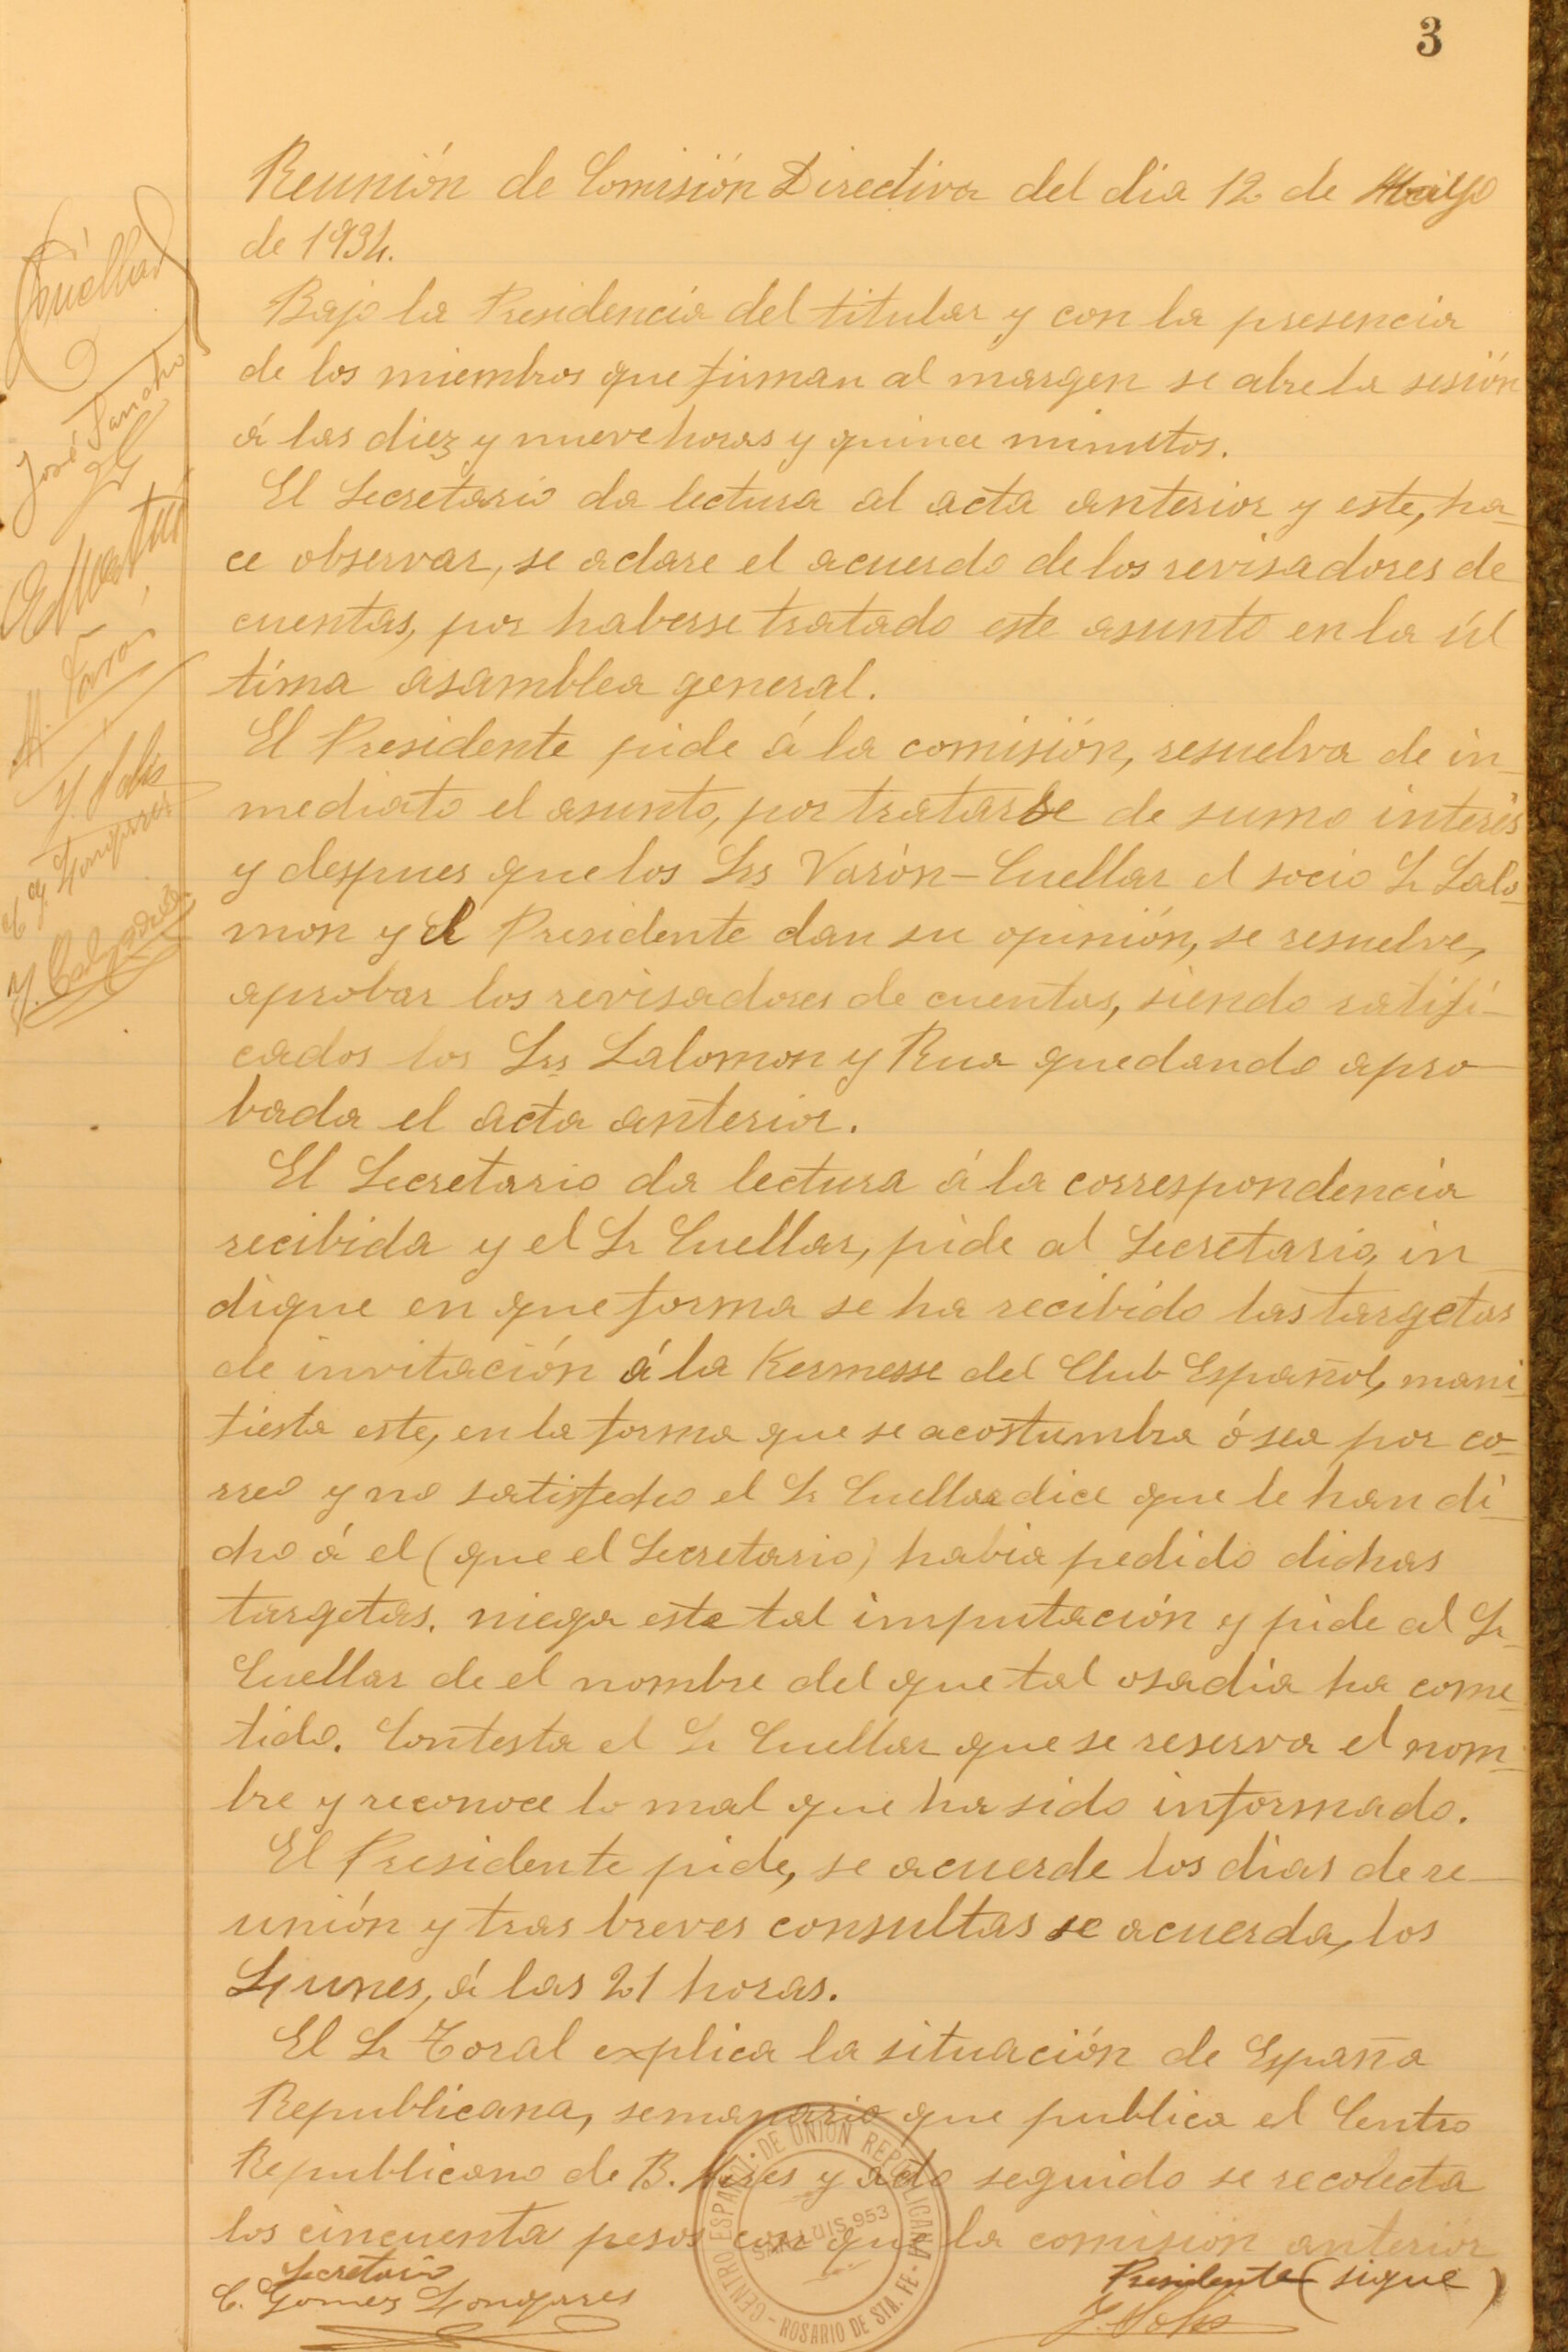 3
Reunión de Comisión Directiva del dia 12 de
de 1934.
Bajo la Presidencia del titular y con la presencia
de los miembros que firman al margen se abre la sesión
á las diez y nueve horas y quince minutos.
El Secretario da lectura al acta anterior y este, ha-
ce observar, se aclare el acuerdo de los revisadores de
cuentas, por haberse tratado este asunto en la úl
tima asamblea general.
El Presidente pide á la comisión, resuelva de in-
mediato el asunto, por tratarse de sumo interés
y despues que los Srs Varón-Cuellar el socio Sr Salo-
mon y el Presidente dan su opinión, se resuelve,
aprobar los revisadores de cuentas, siendo ratifi-
cados los Srs Salomon y Rua quedando apro-
bada el acta anterior.
El Secretario da lectura á la correspondencia
recibida y el Sr Cuellar, pide al Secretario, in-
dique en que forma se ha recibido las targetas
de invitación á la Kermesse del Club Español, mani-
fiesta este, en la forma que se acostumbra ó sea por co-
rreo y no satisfecho el Sr Cuellar dice que le han di-
cho á el (que el Secretario) habia pedido dichas
targetas. niega este tal imputación y pide al Sr
Cuellar de el nombre del que tal osadia ha come-
tido. Contesta el Sr Cuellar que se reserva el nom-
bre y reconoce lo mal que ha sido informado.
El Presidente pide, se acuerde los dias de re-
unión y tras breves consultas se acuerda, los
Lunes, á las 21 horas.
El Sr Toral explica la situación de España
Republicana, semanario que publica el Centro
Republicano de B. Aires y acto seguido se recolecta
los cincuenta pesos con que la comisión anterior
Secretario
C. Gomez Longares
Presidente (sigue)
Cuellar
José Sancho
E Martin
Y. Solis
C. G. Longares
CENTRO ESPAÑOL DE UNION REPUBLICANA - ROSARIO DE STA. FE -
SAN LUIS 953